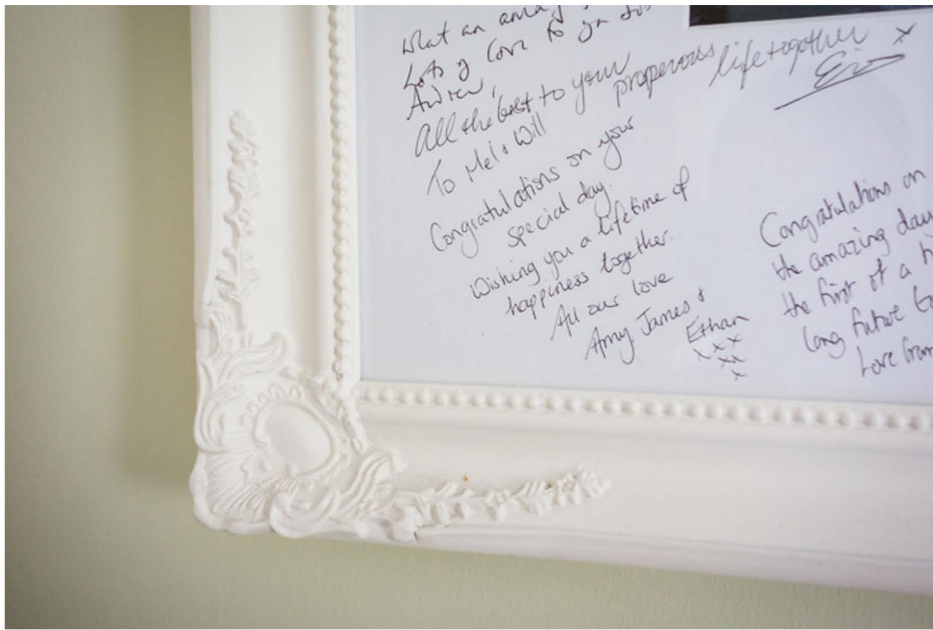 what an amaz
Lots of love to you
Andrew,
All the best to your properous life together x
To Mel & Will
Congratulations on your
special day.
Wishing you a lifetime of
happiness together.
All our love
Amy James &
Ethan
xxx
xx
x
Congratulations on
the amazing day
the first of a h
long future
Love Gran